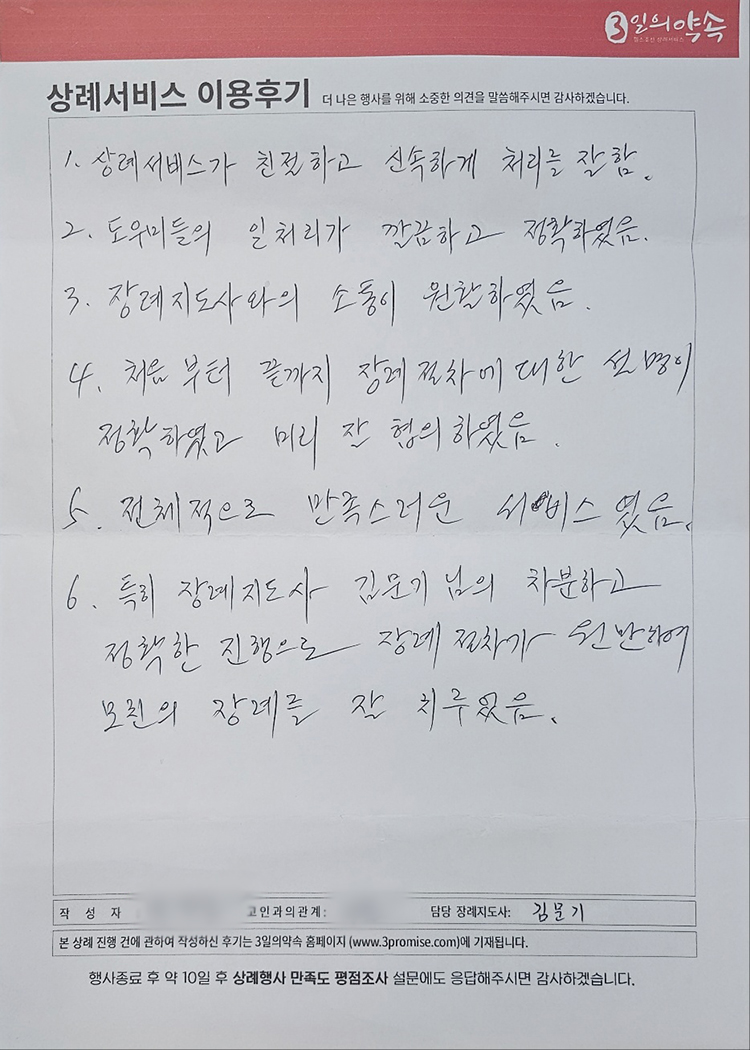 3일의약속
상례서비스 이용후기 더 나은 행사를 위해 소중한 의견을 말씀해주시면 감사하겠습니다.
1. 상례서비스가 친절하고 신속하게 처리를 잘함.
2. 도우미들의 일처리가 깔끔하고 정확하였음.
3. 장례지도사와의 소통이 원활하였음.
4. 처음부터 끝까지 장례절차에 대한 설명이
정확하였고 미리 잘 협의하였음.
5. 전체적으로 만족스러운 서비스였음.
6. 특히 장례지도사 김문기님의 차분하고
정확한 진행으로 장례절차가 원만하여
모친의 장례를 잘 치루었음.
작 성 자 고인과의관계: 담당 장례지도사: 김문기
본 상례 진행 건에 관하여 작성하신 후기는 3일의약속 홈페이지 (www.3promise.com)에 기재됩니다.
행사종료 후 약 10일 후 상례행사 만족도 평점조사 설문에도 응답해주시면 감사하겠습니다.